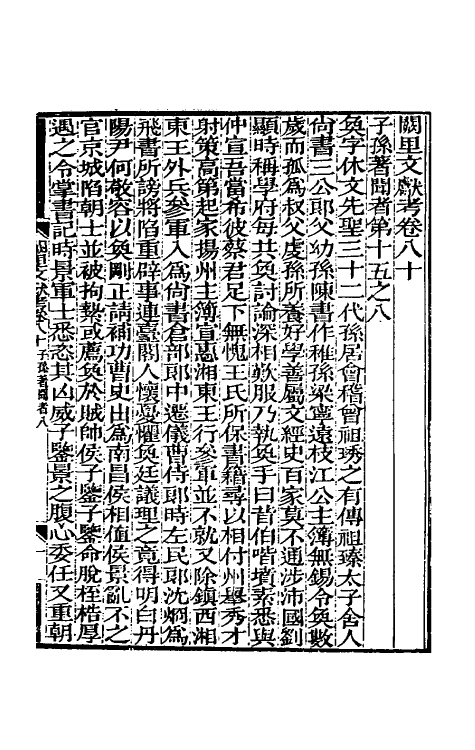 闕里文獻考卷八十
子孫著聞者第十五之八
奐字休文先聖三十二代孫居會稽曾祖琇之有傳祖臻太子舍人
尙書三公郎父幼孫陳書作稚孫梁寧遠枝江公主簿無錫令奐數
歲而孤爲叔父虔孫所養好學善屬文經史百家莫不通涉沛國劉
顯時稱學府每共奐討論深相歎服乃執奐手曰昔伯喈墳素悉與
仲宣吾當希彼蔡君足下無愧王氏所保書籍尋以相付州舉秀才
射策高第起家揚州主簿宣惠湘東王行參軍並不就又除鎮西湘
東王外兵參軍入爲尙書倉部郎中遷儀曹侍郎時左民郎沈炯爲
飛書所謗將陷重辟事連臺閣人懷憂懼奐廷議理之竟得明白丹
陽尹何敬容以奐剛正請補功曹史出爲南昌侯相值侯景亂不之
官京城陷朝士並被拘縶或薦奐於賊帥侯子鑒子鑒命脫桎梏厚
遇之令掌書記時景軍士悉恣其凶威子鑒景之腹心委任又重朝
闕里文獻考卷八十 子孫著聞者八
一